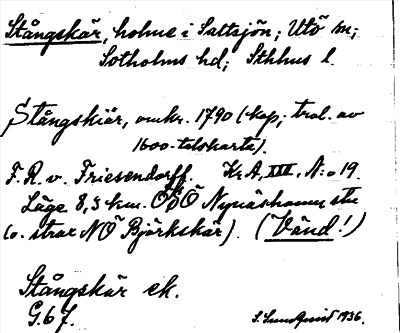 Stångskär, holme i Saltsjön; Utö sn;
Sotholms hd; Sthlms l.
Stångskiär, omkr. 1790 (kop; trol. av
1600-talskarta).
F. R. v. Friesendorff. Kr. A, XIII, N:o 19.
Läge 8,3 km. OSO Nynäshamns stn
(o. strax NO Björkskär). (Vänd!)
Stångskär ek.
G. 6 f.
S. Sundqvist 1936.